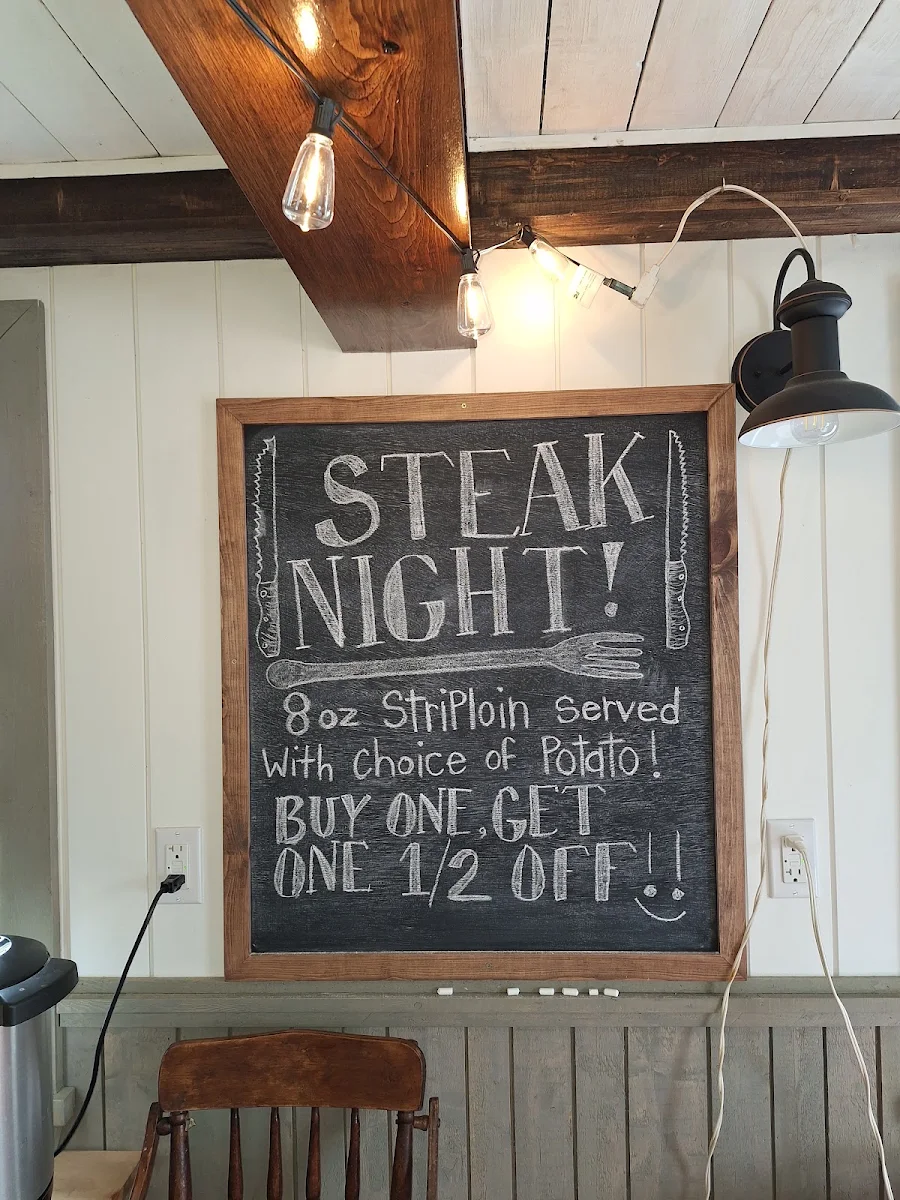 STEAK
NIGHT!
8oz StriPloin Served
With Choice of Potato!
BUY ONE, GET
ONE 1/2 OFF!!